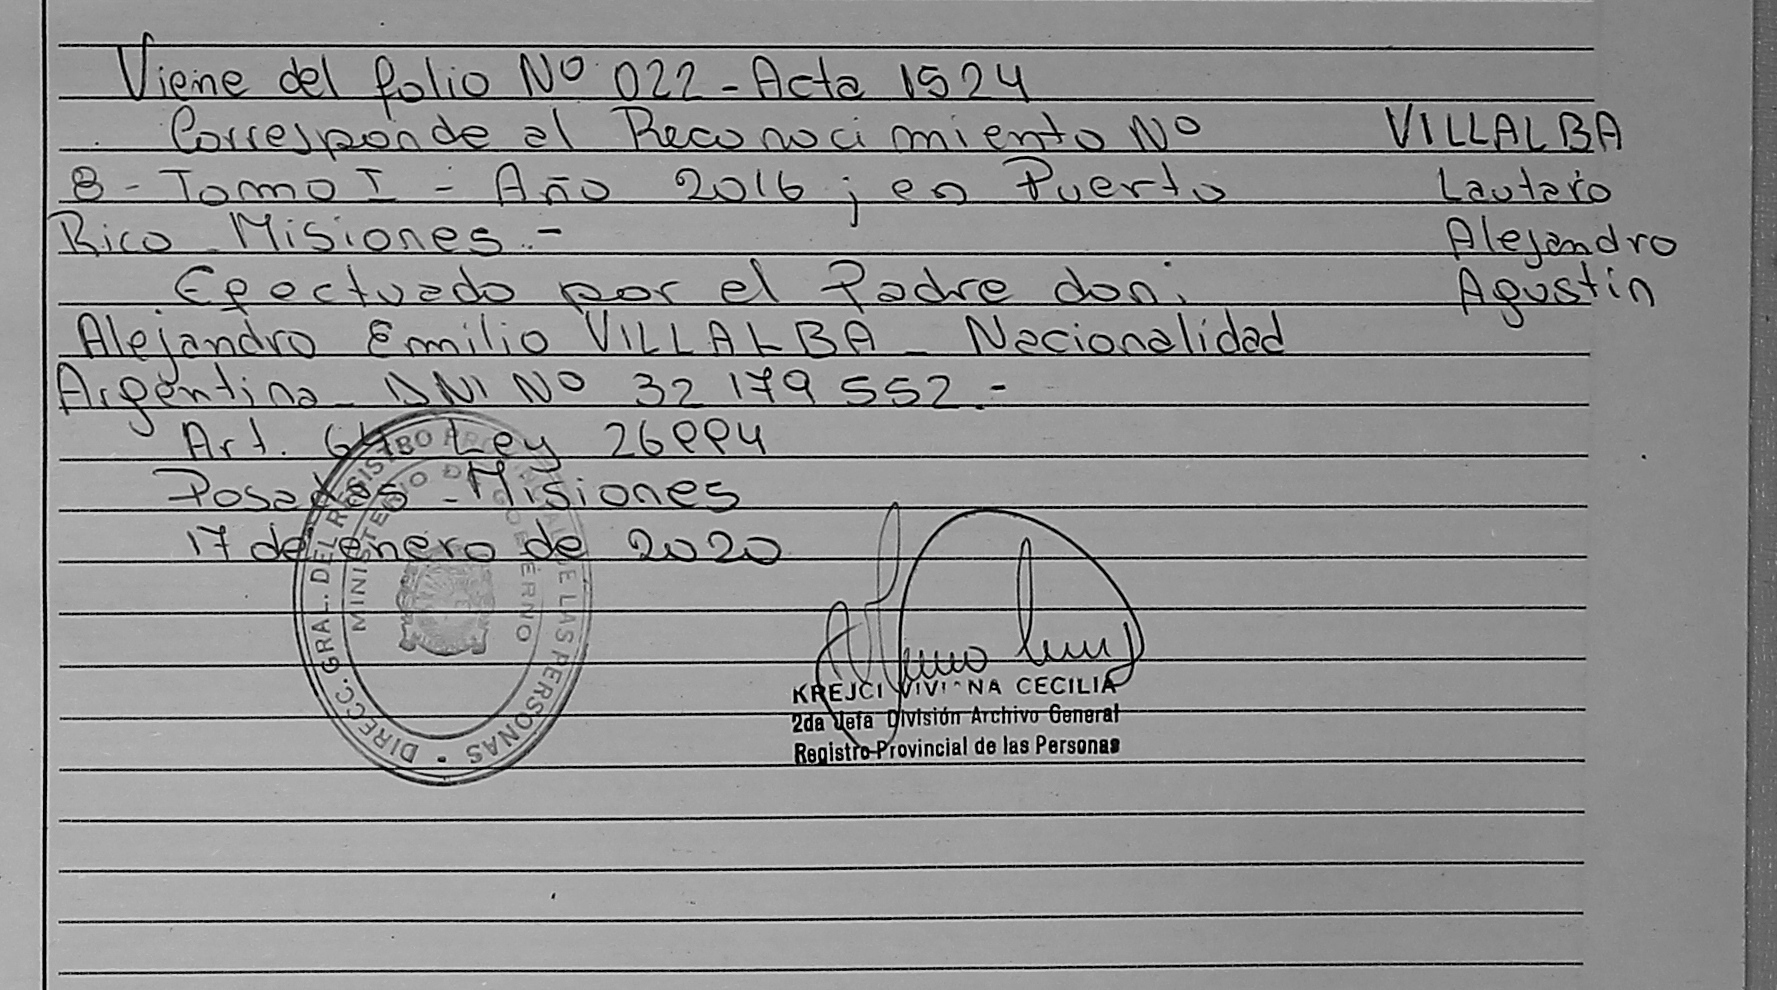 Viene del folio Nº 022 - Acta 1524
Corresponde al Reconocimiento Nº
8 - Tomo I - Año 2016 ; en Puerto
Rico - Misiones.-
Efectuado por el Padre don:
Alejandro Emilio VILLALBA - Nacionalidad
Argentina - DNI Nº 32 179 552.-
Art. 64 Ley 26994
Posadas - Misiones
17 de enero de 2020
VILLALBA
Lautaro
Alejandro
Agustín
DIRECC. GRAL. DEL REGISTRO DE LAS PERSONAS
MINISTERIO DE GOBIERNO
KREJCI VIVIANA CECILIA
2da Jefa División Archivo General
Registro Provincial de las Personas